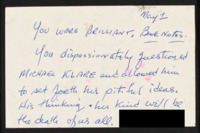 May 1
YOU WERE BRILLIANT,
You dispassionately questioned
MICHAEL KLARE and allowed him
to set forth his pitiful ideas.
His thinking & his kind we'll be
the death of us all.